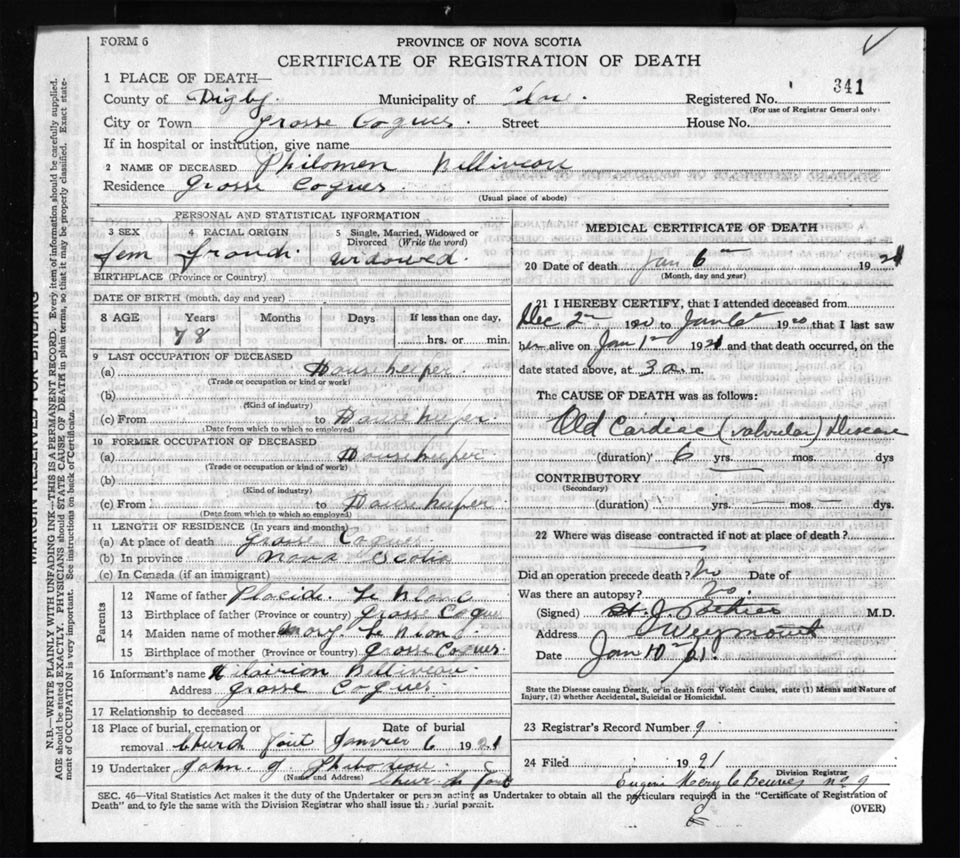 FORM 6
PROVINCE OF NOVA SCOTIA
CERTIFICATE OF REGISTRATION OF DEATH
1 PLACE OF DEATH—
County of Digby. Municipality of Clare. Registered No. 341
(For use of Registrar General only)
City or Town Grosse Coques. Street House No.
If in hospital or institution, give name
2 NAME OF DECEASED Philomen Belliveau
Residence Grosse Coques.
(Usual place of abode)
PERSONAL AND STATISTICAL INFORMATION
3 SEX
fem
4 RACIAL ORIGIN
5 Single, Married, Widowed or Divorced (Write the word)
Widowed.
BIRTHPLACE (Province or Country)
DATE OF BIRTH (month, day and year)
8 AGE Years Months Days If less than one day,
78 hrs. or min.
9 LAST OCCUPATION OF DECEASED
(a) Housekeeper.
(Trade or occupation or kind or work)
(b)
(Kind of industry)
(c) From to Housekeeper.
(Date from which to which so employed)
10 FORMER OCCUPATION OF DECEASED
(a) Housekeeper
(Trade or occupation or kind of work)
(b)
(Kind of industry)
(c) From to Housekeeper.
(Date from which to which so employed)
11 LENGTH OF RESIDENCE (In years and months)
(a) At place of death Grosse Coques
(b) In province Nova Scotia
(c) In Canada (if an immigrant)
Parents
12 Name of father Placid. Le Blanc
13 Birthplace of father (Province or country) Grosse Coques
14 Maiden name of mother Mary Le Blanc
15 Birthplace of mother (Province or country) Grosse Coques.
16 Informant's name Belliveau.
Address Grosse Coques.
17 Relationship to deceased
18 Place of burial, cremation or removal Church Point
Date of burial Janvier 6 1921
19 Undertaker John. J.
(Name and Address)
MEDICAL CERTIFICATE OF DEATH
20 Date of death Jan 6 1921
(Month, day and year)
21 I HEREBY CERTIFY, that I attended deceased from
Dec 2 1920 to Jan 6 1920 that I last saw
her alive on Jan 1 1921 and that death occurred, on the
date stated above, at 3 a. m.
The CAUSE OF DEATH was as follows:
Old Cardiac (valvular) Disease
(duration) 6 yrs. mos. dys
CONTRIBUTORY
(Secondary)
(duration) yrs. mos. dys.
22 Where was disease contracted if not at place of death?
Did an operation precede death? No Date of
Was there an autopsy? No.
(Signed) M.D.
Address Weymouth
Date Jan 10 21.
State the Disease causing Death, or in death from Violent Causes, state (1) Means and Nature of
Injury, (2) whether Accidental, Suicidal or Homicidal.
23 Registrar's Record Number 9
24 Filed 1921
Division Registrar
no 9
SEC. 46—Vital Statistics Act makes it the duty of the Undertaker or person acting as Undertaker to obtain all the particulars required in the "Certificate of Registration of
Death" and to fyle the same with the Division Registrar who shall issue the burial permit.
(OVER)
MARGIN RESERVED FOR BINDING
N.B.—WRITE PLAINLY WITH UNFADING INK—THIS IS A PERMANENT RECORD. Every item of information should be carefully supplied.
AGE should be stated EXACTLY. PHYSICIANS should STATE CAUSE OF DEATH in plain terms, so that it may be properly classified. Exact state-
ment of OCCUPATION is very important. See instructions on back of Certificate.